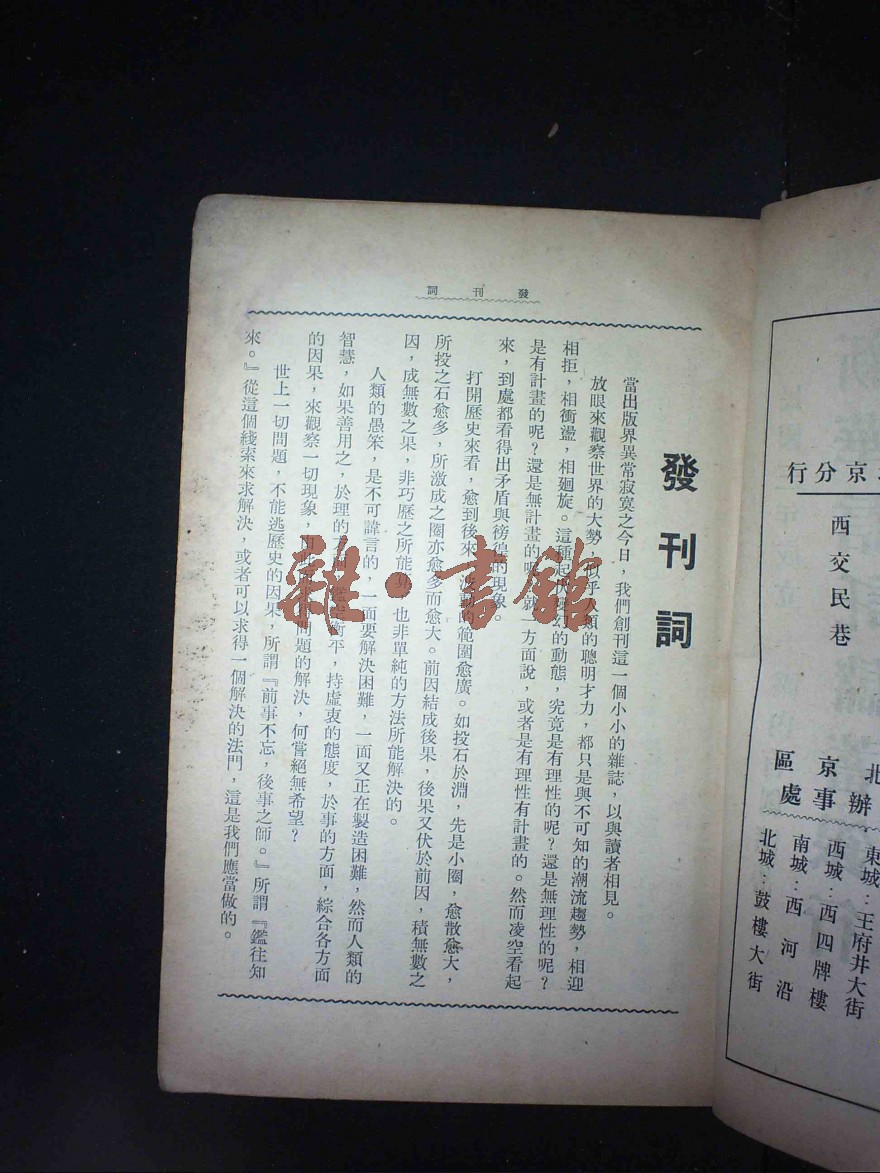 發刊詞
發刊詞
當出版界異常寂寞之今日，我們創刊這一個小小的雜誌，以與讀者相見。
放眼來觀察世界的大勢，以乎人類的聰明才力，都只是與不可知的潮流趨勢，相迎
相拒，相衝盪，相廻旋。這種起伏的動態，究竟是有理性的呢？還是無理性的呢？
是有計畫的呢？還是無計畫的呢？就一方面說，或者是有理性有計畫的。然而凌空看起
來，到處都看得出矛盾與徬徨的現象。
打開歷史來看，愈到後來，波動的範圍愈廣。如投石於淵，先是小圈，愈散愈大，
所投之石愈多，所激成之圈亦愈多而愈大。前因結成後果，後果又伏於前因，積無數之
因，成無數之果，非巧歷之所能算，也非單純的方法所能解決的。
人類的愚笨，是不可諱言的，一面要解決困難，一面又正在製造困難，然而人類的
智慧，如果善用之，於理的方面，鑑空衡平，持虛衷的態度，於事的方面，綜合各方面
的因果，來觀察一切現象，由此問題的解決，何嘗絕無希望？
世上一切問題，不能逃歷史的因果，所謂『前事不忘，後事之師。』所謂『鑑往知
來。』從這個綫索來求解決，或者可以求得一個解決的法門，這是我們應當做的。
雜·書館
京分行
西交民巷
北京辦事區處
東城：王府井大街
西城：西四牌樓
南城：西河沿
北城：鼓樓大街